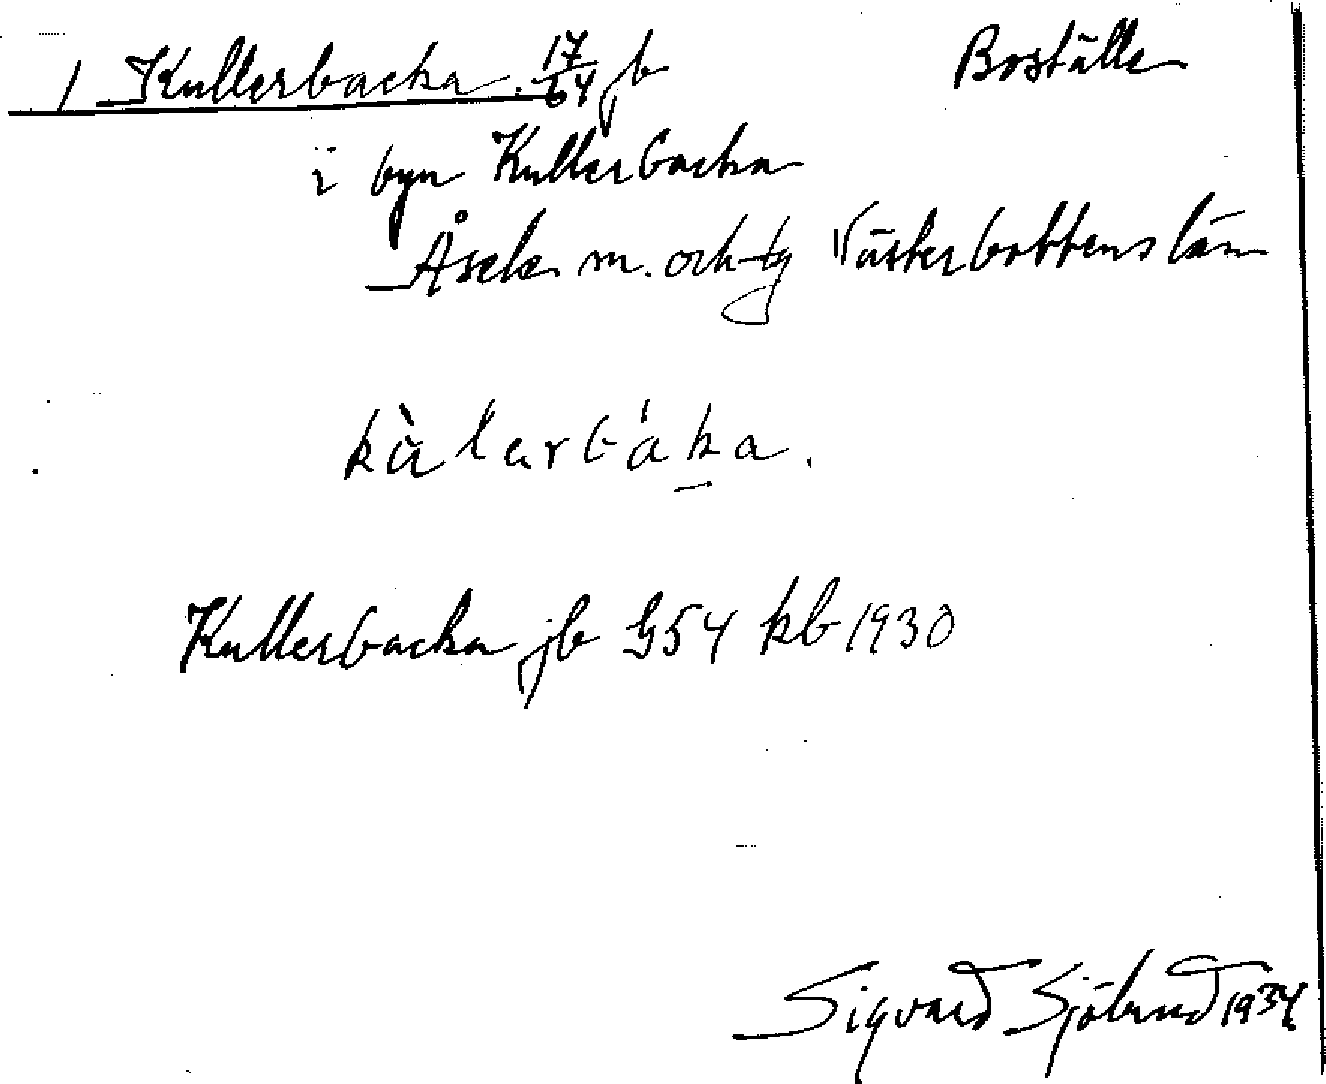 1 Kullerbacka. 17/64 jb Boställe
i byn Kullerbacka
Åsele m. och tg Västerbottens län
kàlarbáka.
Kullerbacka jb G54 kb 1930
Sigvard Sjölund 1934